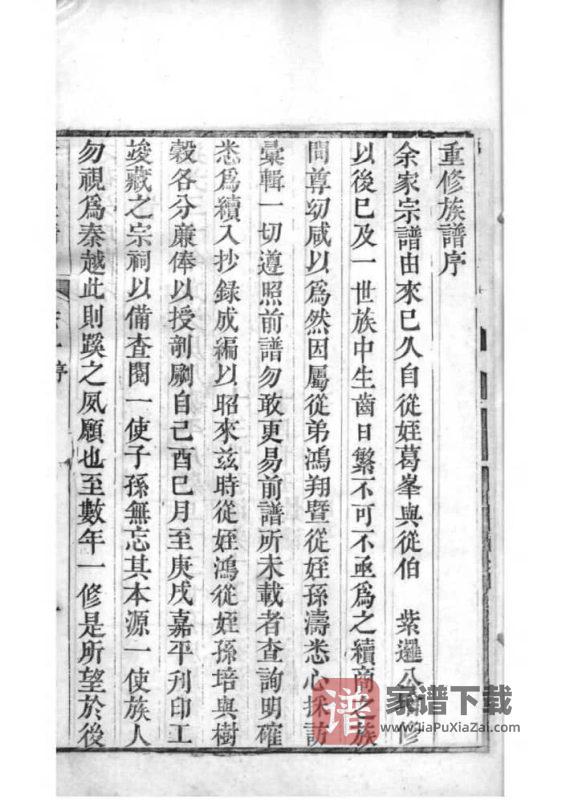 重修族譜序
余家宗譜由來已久自從姪葛峯與從伯　紫邏公修
以後已及一世族中生齒日繁不可不亟爲之續商之族
間尊幼咸以爲然因屬從弟鴻翔暨從姪孫濤悉心採訪
彙輯一切遵照前譜勿敢更易前譜所未載者查詢明確
悉爲續入抄錄成編以昭來茲時從姪鴻從姪孫培與樹
穀各分亷俸以授剞劂自己酉巳月至庚戌嘉平刋印工
竣藏之宗祠以備查閱一使子孫無忘其本源一使族人
勿視爲秦越此則蹊之夙願也至數年一修是所望於後
序
谱
家谱下载
www.JiaPuXiaZai.com